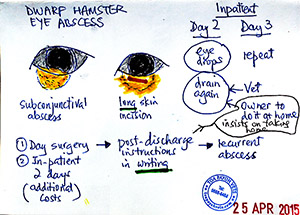 DWARF HAMSTER
EYE ABSCESS
Inpatient
Day 2 Day 3
eye
drops
repeat
drain
again
Vet
Owner to
do it at home
insists on taking
home
subconjunctival
abscess
long skin
incision
① Day surgery
② In-patient
2 days
(additional
costs)
post-discharge
instructions
in writing
recurrent
abscess
25 APR 2015